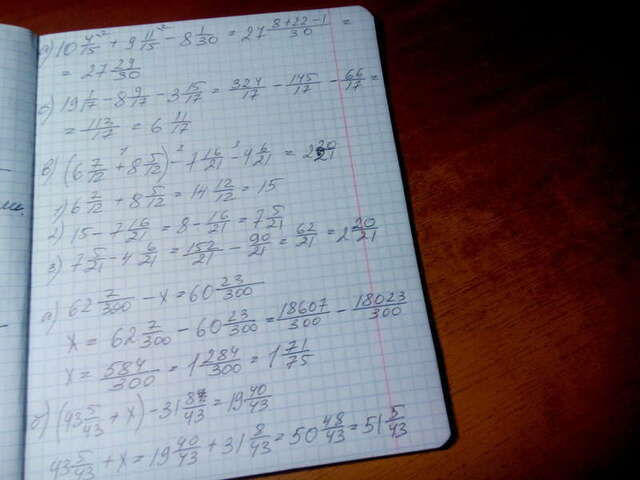 а) 10 4/15 + 9 11/15 - 8 1/30 = 27 8+22-1/30 =
= 27 29/30
б) 19 1/17 - 8 9/17 - 3 15/17 = 324/17 - 145/17 - 66/17 =
= 113/17 = 6 11/17
в) (6 7/12 + 8 5/12) - 7 16/21 - 4 6/21 = 2 20/21
1) 6 7/12 + 8 5/12 = 14 12/12 = 15
2) 15 - 7 16/21 = 8 - 16/21 = 7 5/21
3) 7 5/21 - 4 6/21 = 152/21 - 90/21 = 62/21 = 2 20/21
а) 62 7/300 - x = 60 23/300
x = 62 7/300 - 60 23/300 = 18607/300 - 18023/300
x = 584/300 = 1 284/300 = 1 71/75
б) (43 5/43 + x) - 31 8/43 = 19 40/43
43 5/43 + x = 19 40/43 + 31 8/43 = 50 48/43 = 51 5/43